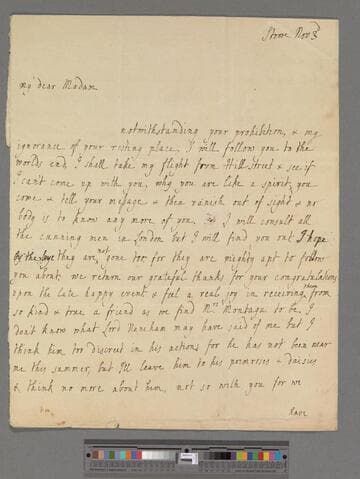 Stowe Nov 3d
my dear Madam
notwithstanding your prohibition, & my
ignorance of your resting place, I will follow you to the
worlds end, I shall take my flight from Hill Street & see if
I can't come up with you, why you are like a spirit, you
come & tell your message & then vanish out of sight & no
body is to know any more of you, I will consult all
the cunning men in London but I will find you out I hope
they are not gone too, for they are mighty apt to follow
you about. we return our grateful thanks for your congratulations
upon the late happy event & feel a real joy in receiving them from
so kind & true a friend as we find Mrs Montagu to be. I
don't know what Lord Nuneham may have said of me but I
think him too discreet in his actions for he has not been near
me this summer, but I'll leave him to his primroses & daisies
& think no more about him, not so with you for we
have